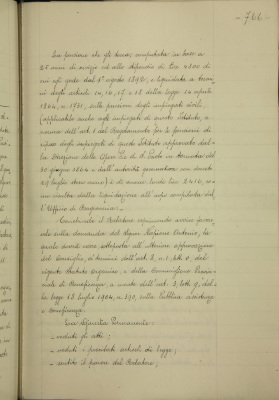 - 766 -
La pensione che gli dovrà, computata in base a
25 anni di servizio ed allo stipendio di Lire 4200 di
cui egli gode dal 1° agosto 1898, e liquidata a termi-
ni degli articoli 14, 16, 17 e 18 della legge 14 aprile
1864, n. 1731, sulle pensioni degli impiegati civili,
(applicabile anche agli impiegati di questo Istituto, a
norma dell'art. 1 del Regolamento per le pensioni di
riposo degli impiegati di questo Istituto approvato dal-
la Direzione delle Opere Pie di S. Paolo in
30 giugno 1864 e dall'autorità governativa con decreto
29 luglio stesso anno) è di annue lorde Lire 2416, co-
me risulta dalla liquidazione all'uopo compilata dal-
l'Ufficio di Ragioneria.
Conchiude il Relatore esprimendo avviso favore-
vole sulla domanda del Signor Antonio, la
quale dovrà essere sottoposta all'ulteriore approvazione
del Consiglio, ai termini dell'art. 8, n. 1, lett. d, del
vigente Statuto organico e della Commissione Provin-
ciale di Beneficenza, a mente dell'art. 3, lett. g, del-
la legge 18 luglio 1904, n. 390, sulla Pubblica Assistenza
e Beneficenza.
Permanente:
- veduti gli atti;
- veduti i precitati articoli di legge;
- sentito il parere del Relatore;